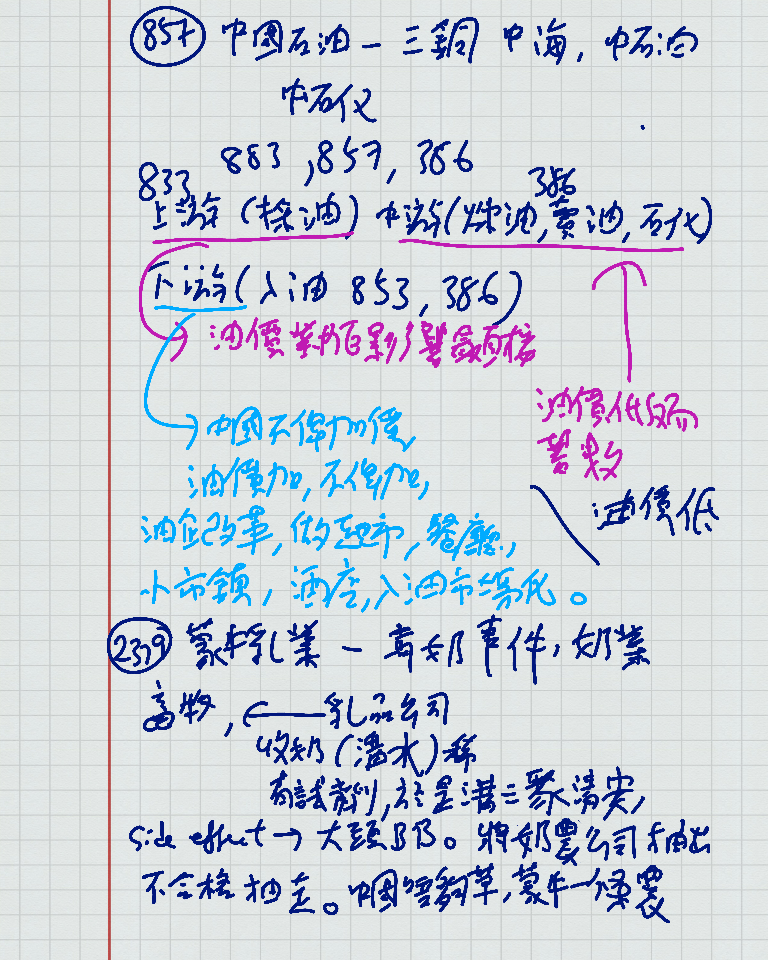 857 中國石油 — 三銅 中海, 中石油
中石化
883, 857, 386
833 386
上游 (採油) 中游(煉油, 賣油, 石化)
下游(入油 853, 386)
油價 影響最直接
中國不得加價
油價加, 不得加,
油價低
油企改革, 做超市, 餐廳,
小市鎮, 酒店, 入油市場化。
油價低
2379 蒙牛乳業 — 毒奶事件, 奶業
畜牧, ← 乳品公司
收奶 (溝水) 稀
有試劑, 於是溝三聚清安,
side effect → 大頭BB。將奶農公司抽出
不合格抽走。中國唔夠草, 蒙牛